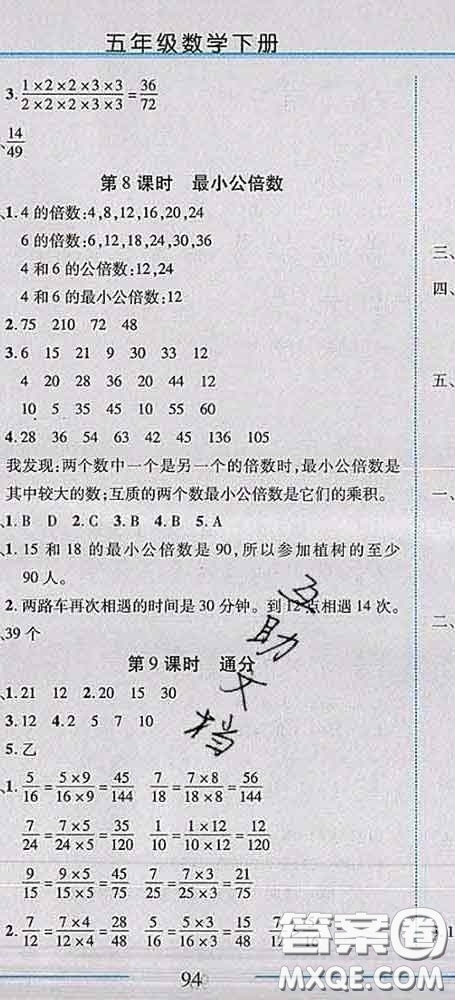 五年级数学下册
3. 1×2×2×3×3/2×2×2×3×3=36/72
14/49
第8课时 最小公倍数
1. 4的倍数:4,8,12,16,20,24
6的倍数:6,12,18,24,30,36
4和6的公倍数:12,24
4和6的最小公倍数:12
2. 75 210 72 48
3. 6 15 21 9 30 33 12
4 20 28 36 20 44 12
10 5 35 45 10 55 60
4. 28 36 54 63 25 42 45 136 105
我发现:两个数中一个是另一个的倍数时,最小公倍数是
其中较大的数;互质的两个数最小公倍数是它们的乘积。
1. B D 2. C 3. B 4. B 5. A
1. 15和18的最小公倍数是90,所以参加植树的至少
90人。
2. 两路车再次相遇的时间是30分钟。到12点相遇14次。
39个
第9课时 通分
1. 21 12 2. 20 15 30
3. 12 4. 2 5 7 10
5. 乙
1. 5/16=5×9/16×9=45/144 7/18=7×8/18×8=56/144
7/24=7×5/24×5=35/120 1/10=1×12/10×12=12/120
9/15=9×5/15×5=45/75 7/25=7×3/25×3=21/75
2. 7/12=7×4/12×4=28/48
94
三、
四、
五、
一、
二、
互助文档
答案圈
MXQE.COM